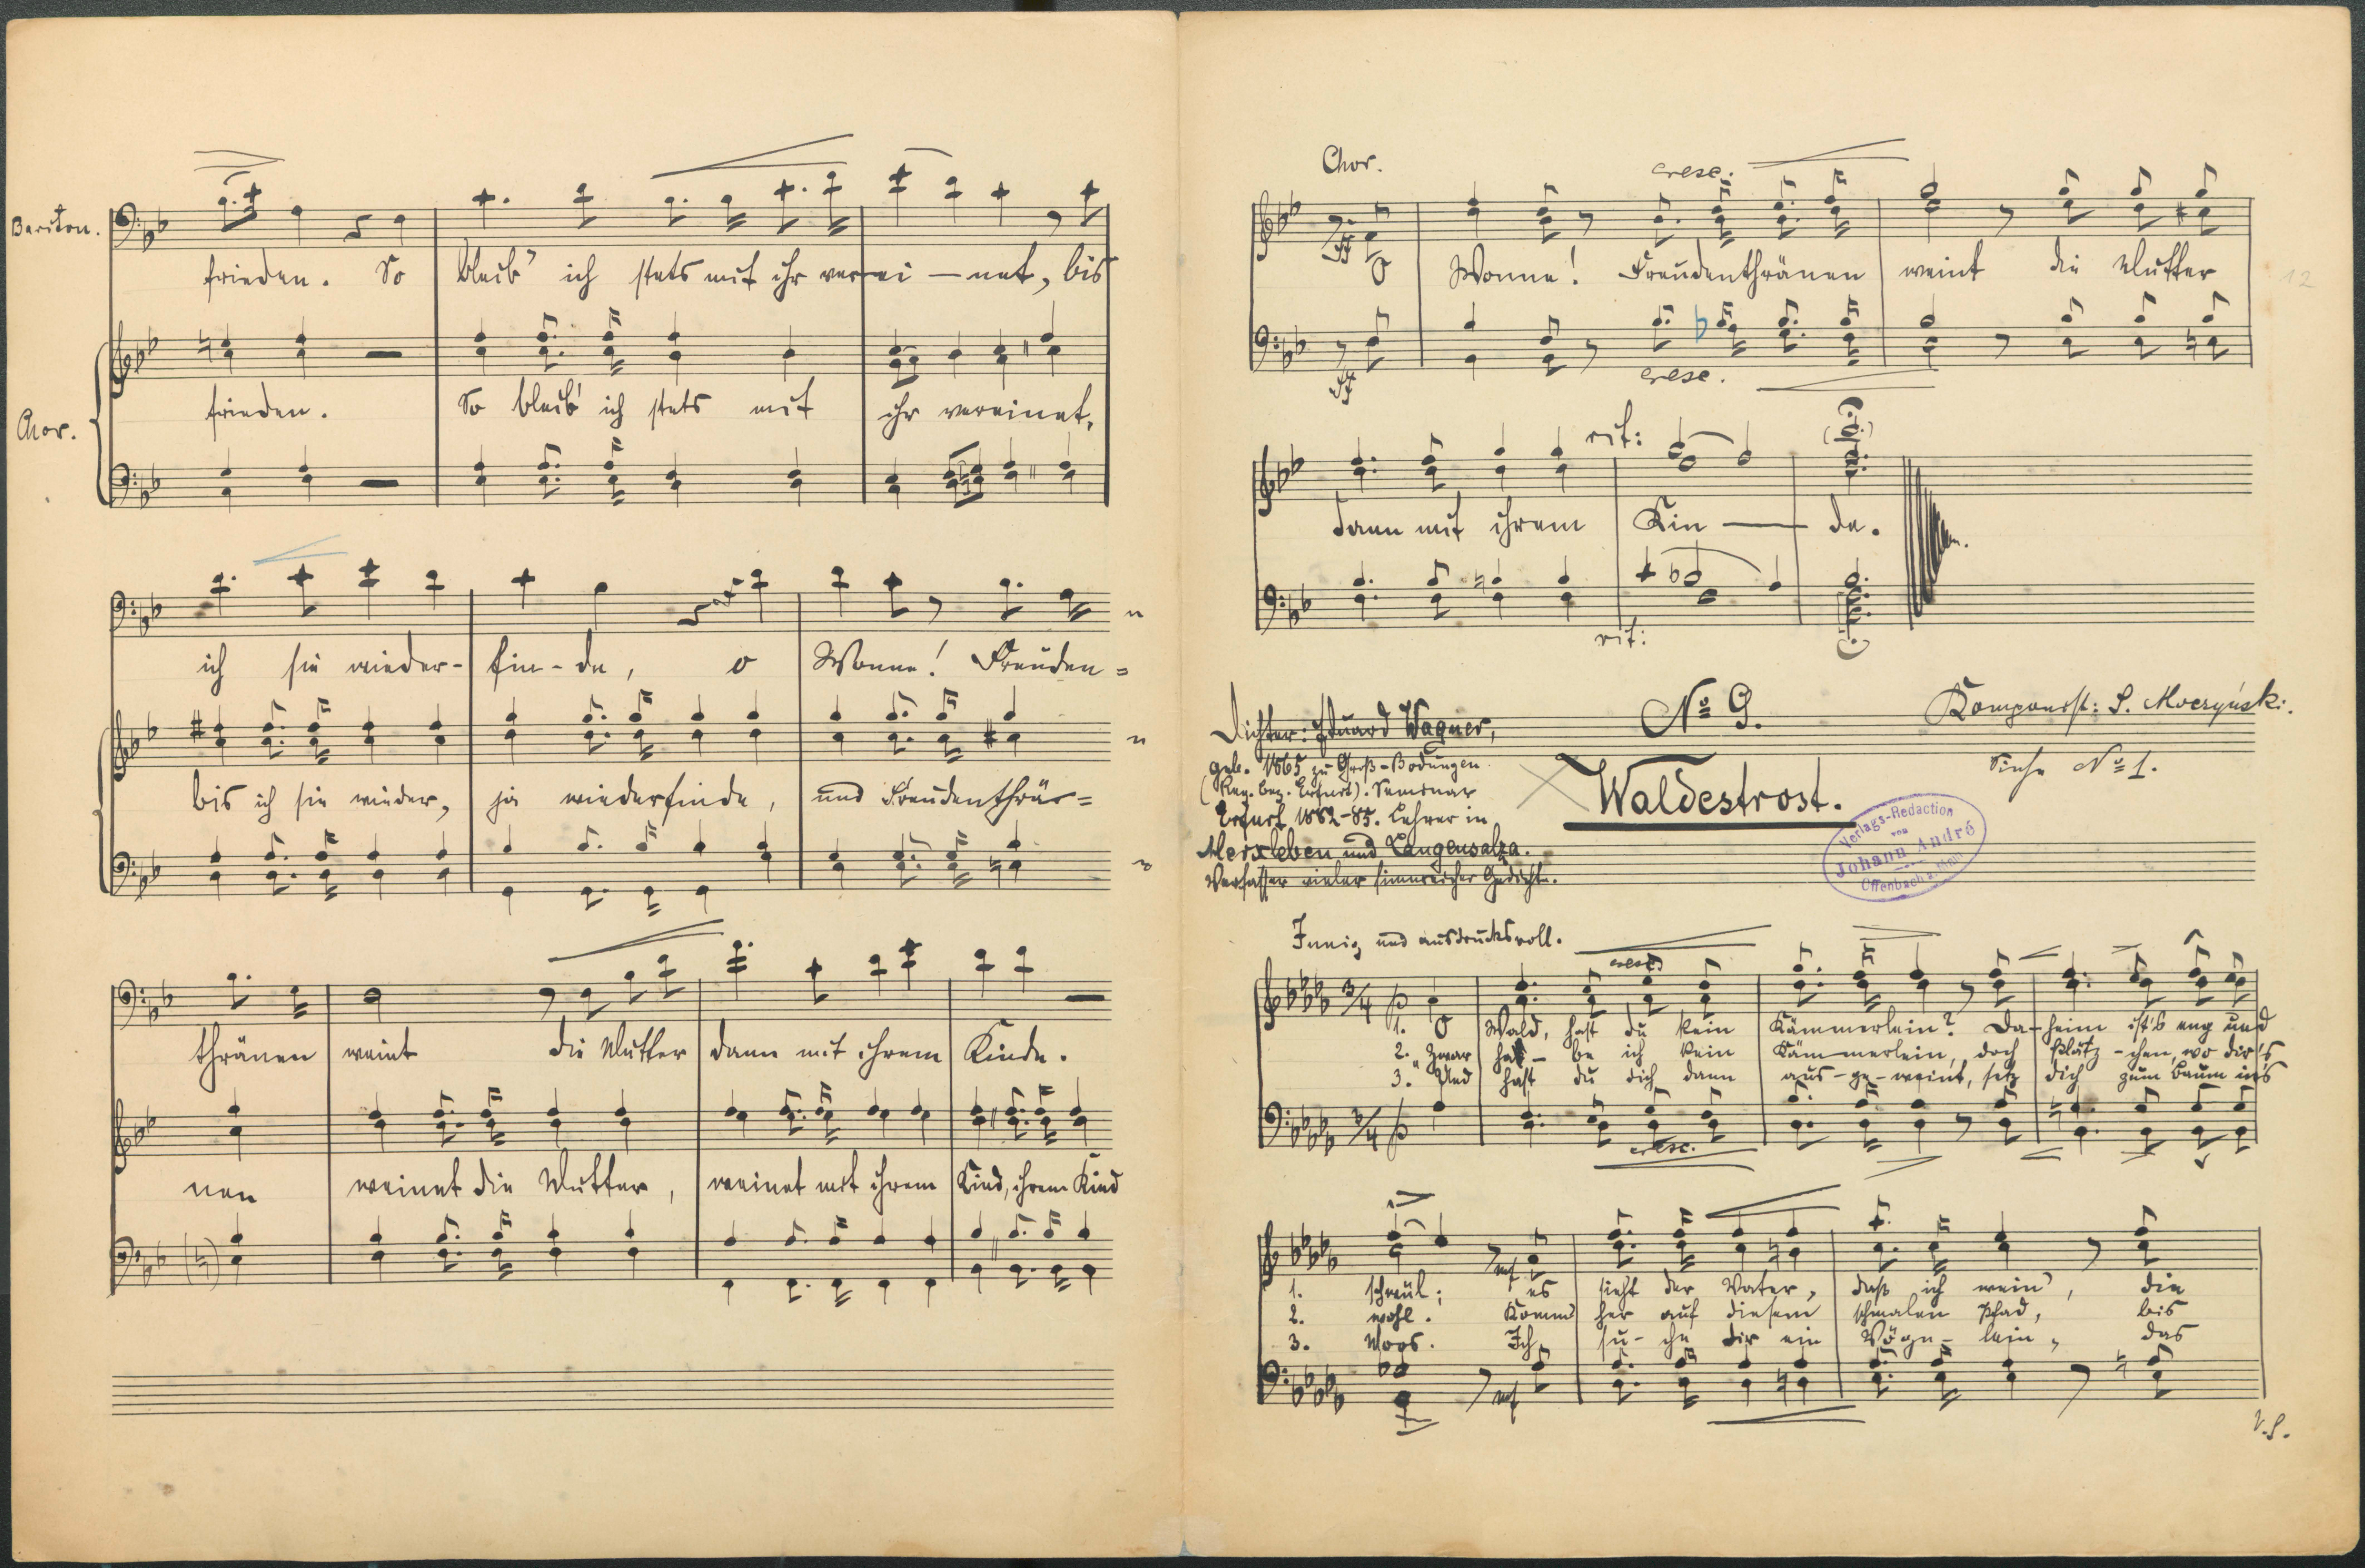 Bariton.
frieden. So bleib' ich stets mit ihr verei - net, bis
Chor.
frieden. So bleib' ich stets mit ihr vereinet,
ich sie wieder- fin - de, o Wonne! Freuden =
bis ich sie wieder, ja wiederfinde, und Freudenthrä =
thränen weint die Mutter dann mit ihrem Kinde.
nen weinet die Mutter, weinet mit ihrem Kind, ihrem Kind
Chor.
cresc.
ff
O Wonne! Freudenthränen weint die Mutter
12
ff
cresc.
rit:
dann mit ihrem Kin - de.
rit:
Dichter: Eduard Wagner,
geb. 1865 zu Groß-Bodungen
(Reg. Bez. Erfurt). Seminar
Erfurt 1882-85. Lehrer in
Merxleben und Langensalza.
Verfasser vieler sinnreicher Gedichte.
No 9.
Waldestrost.
Komponist: S. Moczyński.
Siehe No 1.
Verlags-Redaction
von
Johann André
Offenbach a. Main
Innig und ausdrucksvoll.
cresc.
3/4 p
1. O Wald, hast du kein Kämmerlein? Da- heim ist's eng und
2. Zwar ha - be ich kein Käm-merlein, doch Plätz - chen, wo dir's
3. Und hast du dich dann aus - ge - weint, setz dich zum Baum in's
3/4 p
cresc.
mf
1. schwül; es sieht der Vater, daß ich wein', die
2. wohl. Komm' her auf diesem schmalen Pfad, bis
3. Moos. Ich su - che dir ein Vöge - lein, das
mf
V.S.